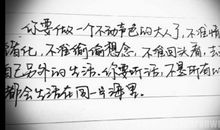 你要做一个不动声色的大人了,不准情
绪化,不准偷偷想念,不准回头看,去过
自己另外的生活,你要听话,不是所有的鱼
都会生活在同一片海里。